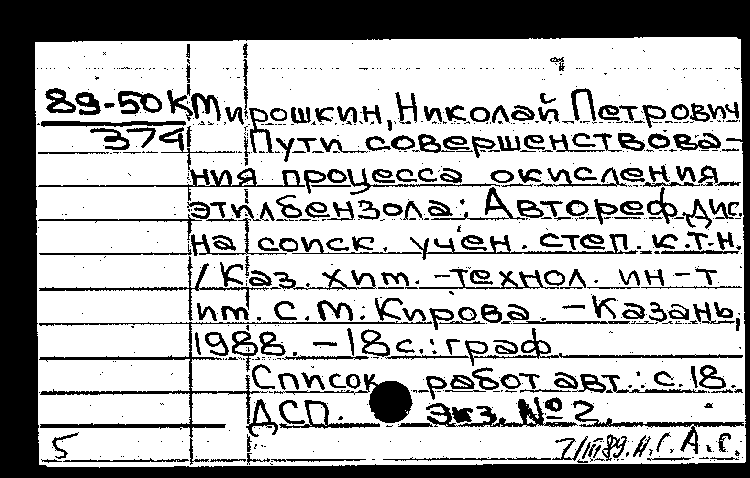 89-50К Мирошкин, Николай Петрович
374 Пути совершенствова-
ния процесса окисления
этилбензола: Автореф. дис.
на соиск. учен. степ. к.т.н.
/ Каз. хим.-технол. ин-т
им. С.М. Кирова. - Казань,
1988. - 18 с.: граф.
Список работ авт.: с. 18.
ДСП. Экз. № 2.
5 7/III 89. Н.Г. А.Г.